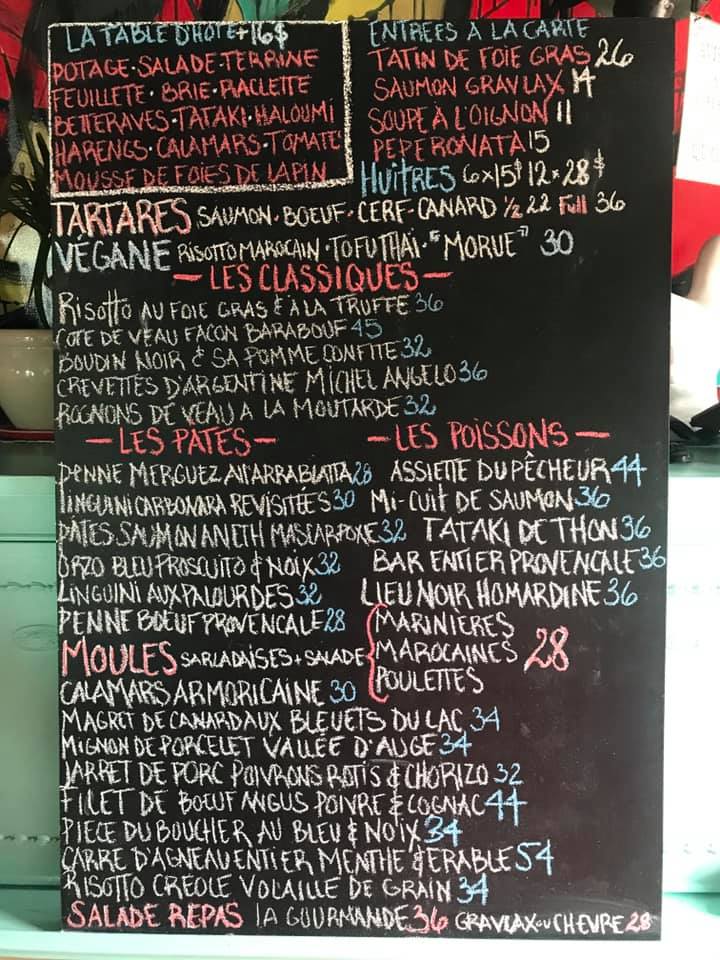 LA TABLE D'HOTE + 16$
POTAGE · SALADE · TERRINE
FEUILLETE · BRIE · RACLETTE
BETTERAVES · TATAKI · HALOUMI
HARENGS · CALAMARS · TOMATE
MOUSSE DE FOIES DE LAPIN
ENTREES À LA CARTE
TATIN DE FOIE GRAS 26
SAUMON GRAVLAX 14
SOUPE À L'OIGNON 11
PEPERONATA 15
HUÎTRES 6x15$ 12x28$
TARTARES SAUMON · BOEUF · CERF · CANARD 1/2 22 Full 36
VÉGANE RISOTTO MAROCAIN · TOFU THAÏ · "MORUE" 30
— LES CLASSIQUES —
RISOTTO AU FOIE GRAS & À LA TRUFFE 36
COTE DE VEAU FACON BARABOUF 45
BOUDIN NOIR & SA POMME CONFITE 32
CREVETTES D'ARGENTINE MICHEL ANGELO 36
ROGNONS DE VEAU A LA MOUTARDE 32
— LES PÂTES —
PENNE MERGUEZ All'ARRABIATTA 28
LINGUINI CARBONARA REVISITÉES 30
PÂTES SAUMON ANETH MASCARPONE 32
ORZO BLEU PROSCUITO & NOIX 32
LINGUINI AUX PALOURDES 32
PENNE BOEUF PROVENCALE 28
— LES POISSONS —
ASSIETTE DU PÊCHEUR 44
MI-CUIT DE SAUMON 36
TATAKI DE THON 36
BAR ENTIER PROVENCALE 36
LIEU NOIR HOMARDINE 36
MOULES SARLADAISES + SALADE
MARINIÈRES
MAROCAINES 28
POULETTES
CALAMARS ARMORICAINE 30
MAGRET DE CANARD AUX BLEUETS DU LAC 34
MIGNON DE PORCELET VALLÉE D'AUGE 34
JARRET DE PORC POIVRONS ROTIS & CHORIZO 32
FILET DE BOEUF ANGUS POIVRE & COGNAC 44
PIECE DU BOUCHER AU BLEU & NOIX 34
CARRE D'AGNEAU ENTIER MENTHE & ERABLE 54
RISOTTO CRÉOLE VOLAILLE DE GRAIN 34
SALADE REPAS LA GOURMANDE 36 GRAVLAX OU CHEVRE 28